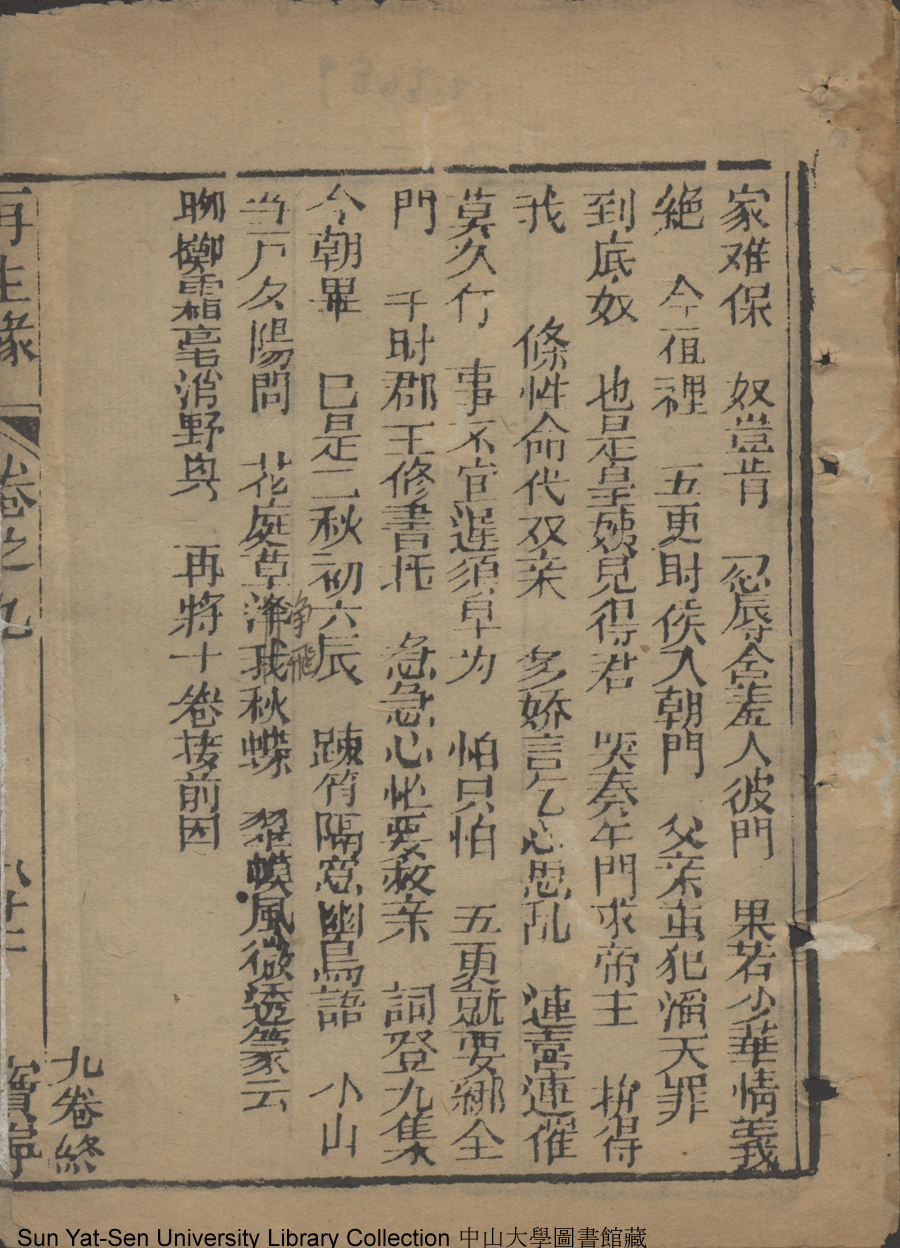 家难保　奴豈肯　忍辱含羞入彼門　果若少華情義
絕　今夜裡　五更时侯入朝門　父亲虽犯滔天罪
到底奴　也是皇姨見得君　哭奏午門求帝主　拚得
我　條性命代双亲　多娇言乞心思乱　連喜連催
莫久佇　事不宜遲須早为　怕只怕　五更就要綁全
門　于时郡王修書托　急急心忙要救亲　詞登九集
今朝畢　巳是二秋初六辰　踈竹隔窓幽鳥語　小山
当户夕陽問　花庭草淨飛秋蝶　翠幙風微透篆云
聊擲霜毫消野兴　再將十卷接前因
九卷終
再生緣　卷之九
寶寧
Sun Yat-Sen University Library Collection 中山大學圖書館藏